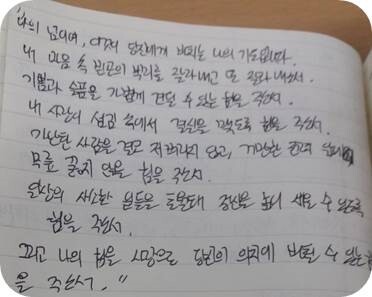 "나의 님이여, 이것이 당신에게 바치는 나의 기도입니다.
내 마음 속 빈곤의 뿌리를 잘라내고 또 잘라 내소서.
기쁨과 슬픔을 가볍게 견딜 수 있는 힘을 주소서.
내 사랑이 섬김 속에서 결실을 맺도록 힘을 주소서.
가난한 사람을 결코 저버리지 않고, 거만한 권력 앞에
무릎 꿇지 않을 힘을 주소서.
일상의 사소한 일들을 초월해 정신을 높이 세울 수 있도록
힘을 주소서.
그리고 나의 힘을 사랑으로 당신의 의지에 바칠 수 있는 힘
을 주소서."